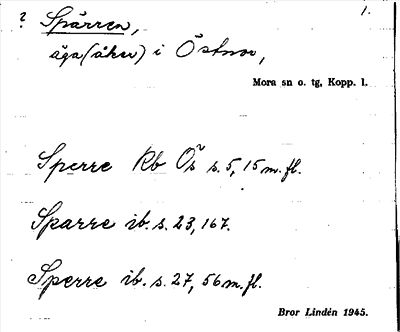 ? Spärren, 1.
äga (åker) i Östnor,
Mora sn o. tg, Kopp. l.
Sperre Rb Ös s. 5, 15 m. fl.
Sparre ib. s. 23, 167.
Sperre ib. s. 27, 56 m. fl.
Bror Lindén 1945.